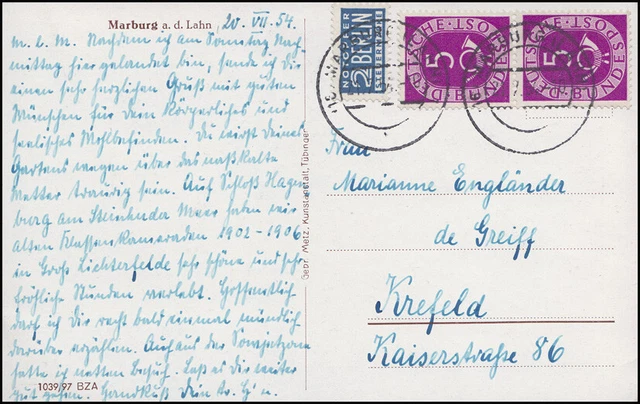 Marburg a. d. Lahn
20. VII. 54.
m. l. M. Nachdem ich am Sonntag Nach-
mittag hier gelandet bin, sende ich dir
einen sehr herzlichen Gruß mit guten
Wünschen für Dein körperliches und
seelisches Wohlbefinden. Du wirst Deines
Gartens wegen über das naßkalte
Wetter traurig sein. Auf Schloß Hagen
burg am Steinhuder Meer haben wir
alten Klassenkameraden 1902-1906
in Groß Lichterfelde sehr schöne und sehr
fröhliche Stunden verlebt. Hoffentlich
darf ich dir recht bald einmal mündlich
darüber erzählen. Auch aus der Sowjetzone
hatte ich netten Besuch. Laß es dir weiter
gut gehen. Handkuß Dein tr.
1039/97 BZA
Gebr. Metz, Kunstanstalt, Tübingen
NOTOPFER
2 BERLIN
STEUERMARKE
DEUTSCHE · BUNDESPOST
5
DEUTSCHE · BUNDESPOST
5
Frau
Marianne Engländer
de Greiff
Krefeld
Kaiserstraße 86